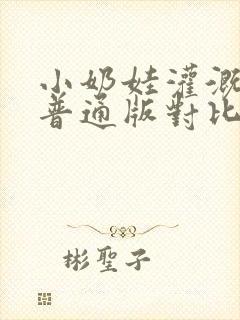 小奶娃灌溉
普通版對比
彬聖子